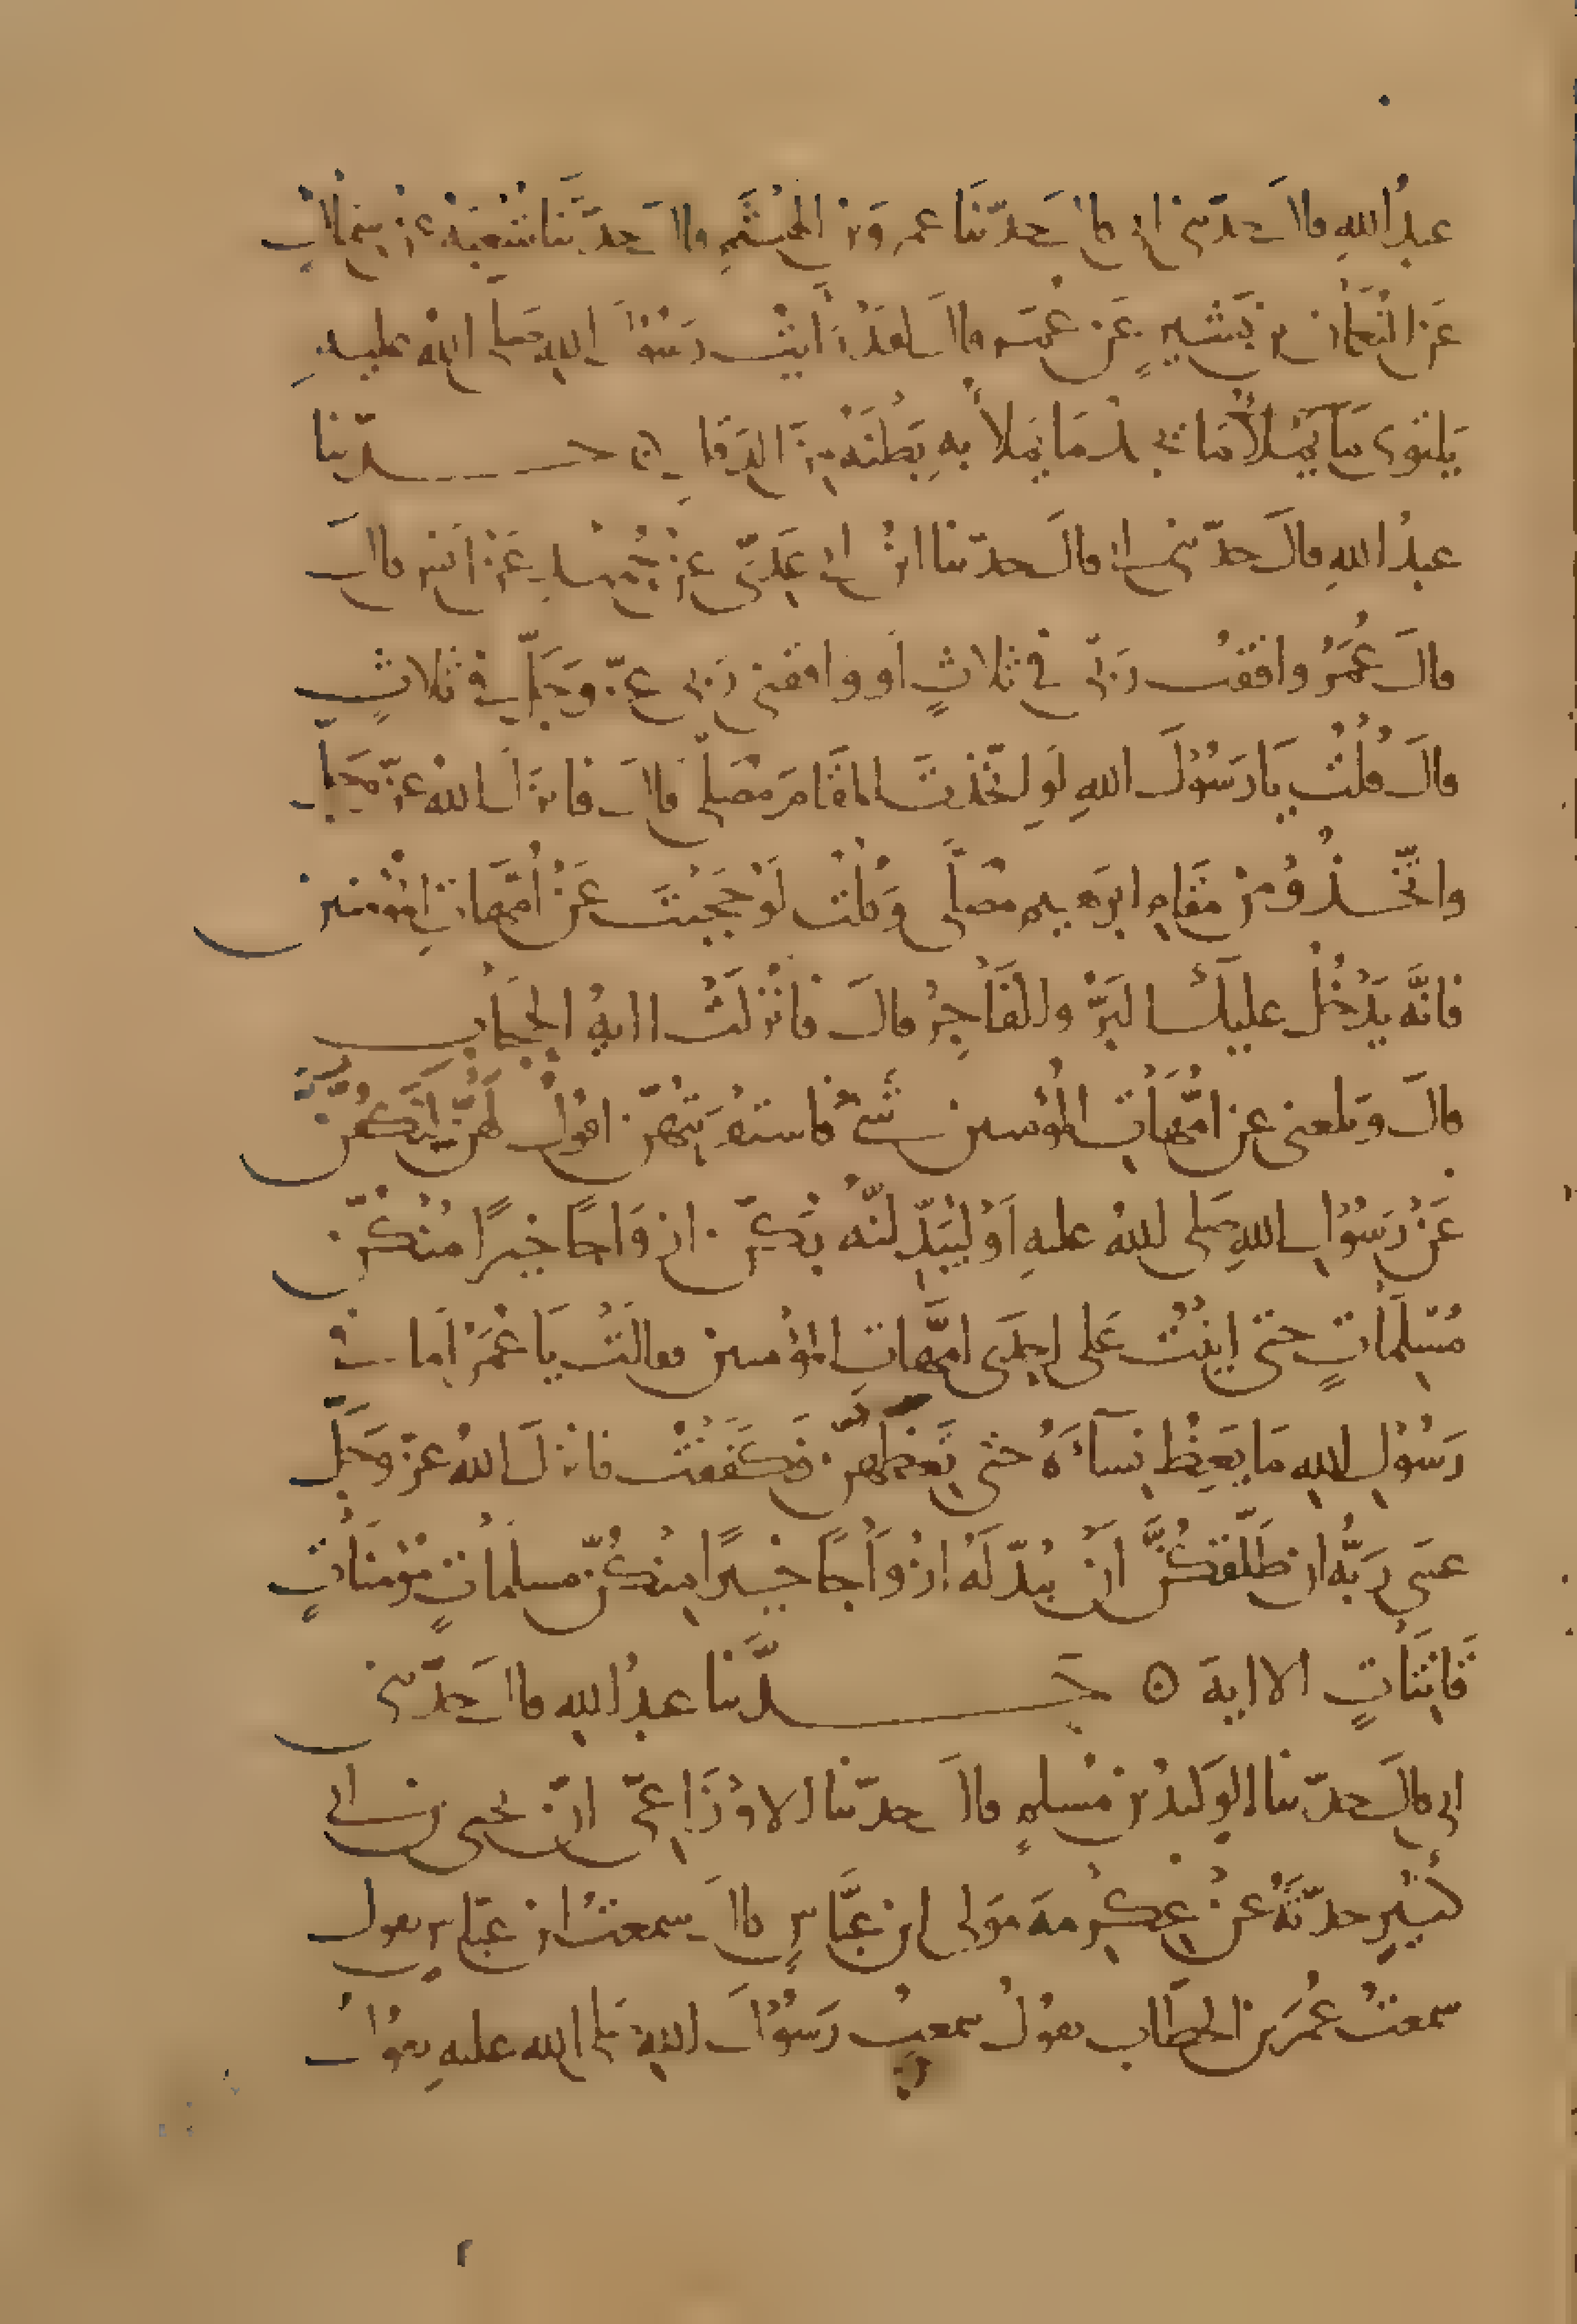 عبدُ اللهِ قال حدّثني ابي قال حَدّثنَا عمرو بن الهيْثَمِ قال حَدَّثنا شُعْبَةُ عن سِمَاكٍ
عَنِ النُّعْمَان بن بَشيرٍ عَن عُمَر قال لقدْ رَأيْتُ رَسُوْلَ اللهِ صلى اللهُ عليهِ
يَلتوى مَا يَجِدُ مَا يَمْلأُ بهِ بَطْنَهُ مِنَ الدَقَلِ ۞ حدّثنا
عبدُ اللهِ قالَ حدّثني ابي قالَ حدّثنا ابنُ ابي عَدِيّ عنْ حُمَيْدٍ عَنْ اَنسٍ قال
قالَ عُمَرُ وافقتُ رَبّي في ثلاثٍ اَو وافقني رَبي عزّ وَجَلَّ في ثلاثٍ
قالَ قُلْتُ يَا رَسُوْلَ اللهِ لَوِ اتّخَذتَ المَقَامَ مُصَلًّى قالَ فانزَلَ اللهُ عزّ وَجَلّ
واتَّخِذُوْ مِنْ مَقَامِ ابرَهيم مُصَلًّى وَقُلتُ لَوْ حَجَبْتَ عَنْ اُمَّهاتِ المُؤْمنين
فانَّه يَدْخُلُ عليكَ البَرُّ والفَاجِرُ قالَ فانْزلَتْ اايةُ الحِجَابِ
قالَ وَبلغنى عن امَّهَاتِ المُؤْمنين شَيْءٌ فاستقْرَيتهُنّ اقولُ لهُنّ لتكُفُّنَّ
عَنْ رَسُوْلِ اللهِ صَلى اللهُ عليهِ اَوْ ليُبَدِّلَنَّهُ بِكُنَّ ازوَاجًا خيرًا منْكُنَّ
مُسْلِمَاتٍ حتى اتيْتُ عَلى اِحدَى امَّهاتِ المُؤمنين فقالَتْ يَا عُمَرُ اَمَا في
رَسُوْلِ اللهِ مَا يَعِظُ نِسَآءَهُ حتى تَعِظَهُنَّ فكَفَفْتُ فانزلَ اللهُ عزّ وَجَلّ
عسَى رَبُّه ان طَلّقكُنَّ اَنْ يُبْدِّلَهُ ازْوَاجًا خيْرًا مِنْكُنّ مسلمَاتٍ مُؤمنَاتٍ
قَانِتَاتٍ الاايةَ ۞ حَدَّثنا عبدُ اللهِ قالَ حدّثني
ابي قالَ حدّثنا الوَليْدُ بن مُسْلمٍ قالَ حدّثنا الاوْزَاعيّ انّ يحيى بن ابي
كثيْرٍ حدّثَهُ عن عِكْرِمةَ مَوْلى ابن عَبَّاسٍ قالَ سمعتُ ابن عبّاس يقول
سمعتُ عُمَرَ بن الخطّابِ يقولُ سمعتُ رَسُوْلَ اللهِ صَلى الله عليهِ يقولُ